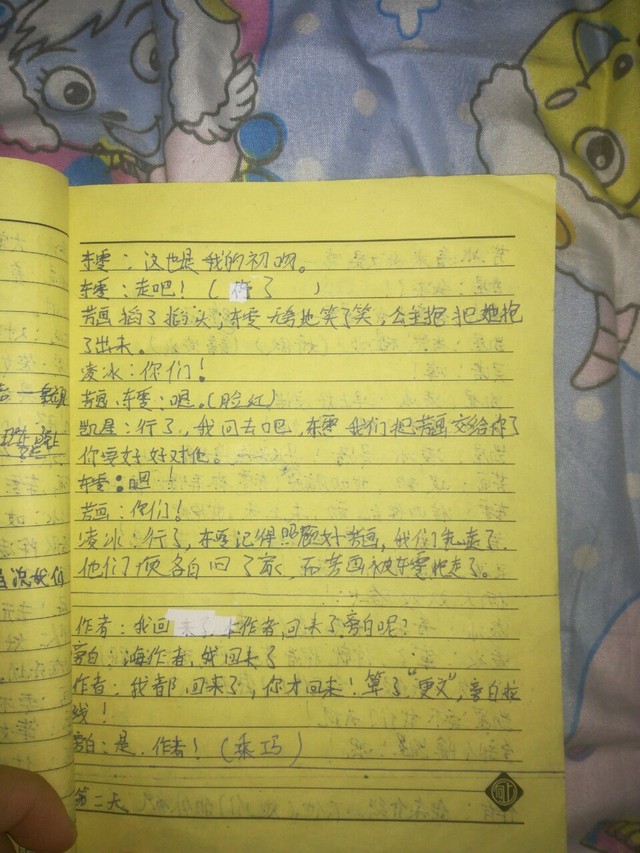 东雯:这也是我的初吻。
东雯:走吧!( 了 )
芳画摇了摇头,东雯无奈地笑了笑,公主抱把她抱
了出来。
凌冰:你们!
芳画、东雯:嗯。(脸红)
凯星:行了,我回去吧,东雯我们把芳画交给你了
你要好好对他。
东雯:嗯!
芳画:你们!
凌冰:行了,东雯记得照顾好芳画,我们先走了.
他们俩各自回了家,而芳画被东雯抱走了。
作者:我回来了,本作者,回来了旁白呢?
旁白:海作者,我回来了
作者:我都回来了,你才回来!算了"更文",旁白拉
线!
旁白:是.作者!(乖巧)
第二天